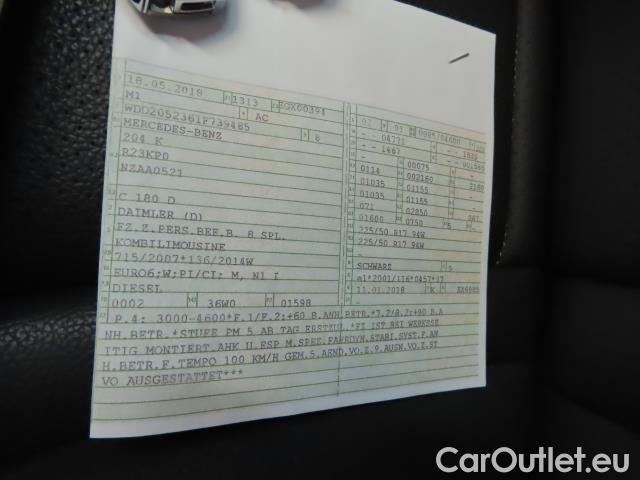 18.05.2018 1313 ZGX00394
M1 AC
WDD2052361F739485 8
MERCEDES-BENZ
204 K
R23KP0
NZAA0521
C 180 D
DAIMLER (D)
FZ.Z.PERS.BEF.B. 8 SPL.
KOMBILIMOUSINE
715/2007*136/2014W
EURO6;W;PI/CI: M, N1 I
DIESEL
0002 36W0 01598
02 03 0085/04600
- - 04771 - - 1539
- 1447 - - 001585
- 00075 -
0114 002160 2160
01035 01155
01035 01155
071 02850 067
01600 0750 5
225/50 R17 94W
225/50 R17 94W
-
SCHWARZ 5
e1*2001/116*0457*17
11.01.2018 K
P.4: 3000-4600*F.1/F.2:+60 B.ANH.BETR.*7.2/8.2:+90 B.A
NH.BETR.*STUFE PM 5 AB TAG ERSTZUL.*FZ IST BEI WERKSSE
ITIG MONTIERT.AHK U.ESP M.SPEZ.FAHRDYN.STABI.SYST.F.AN
H.BETR.F.TEMPO 100 KM/H GEM.5.AEND.VO.Z.9.AUSN.VO.Z.ST
VO AUSGESTATTET***
CarOutlet.eu